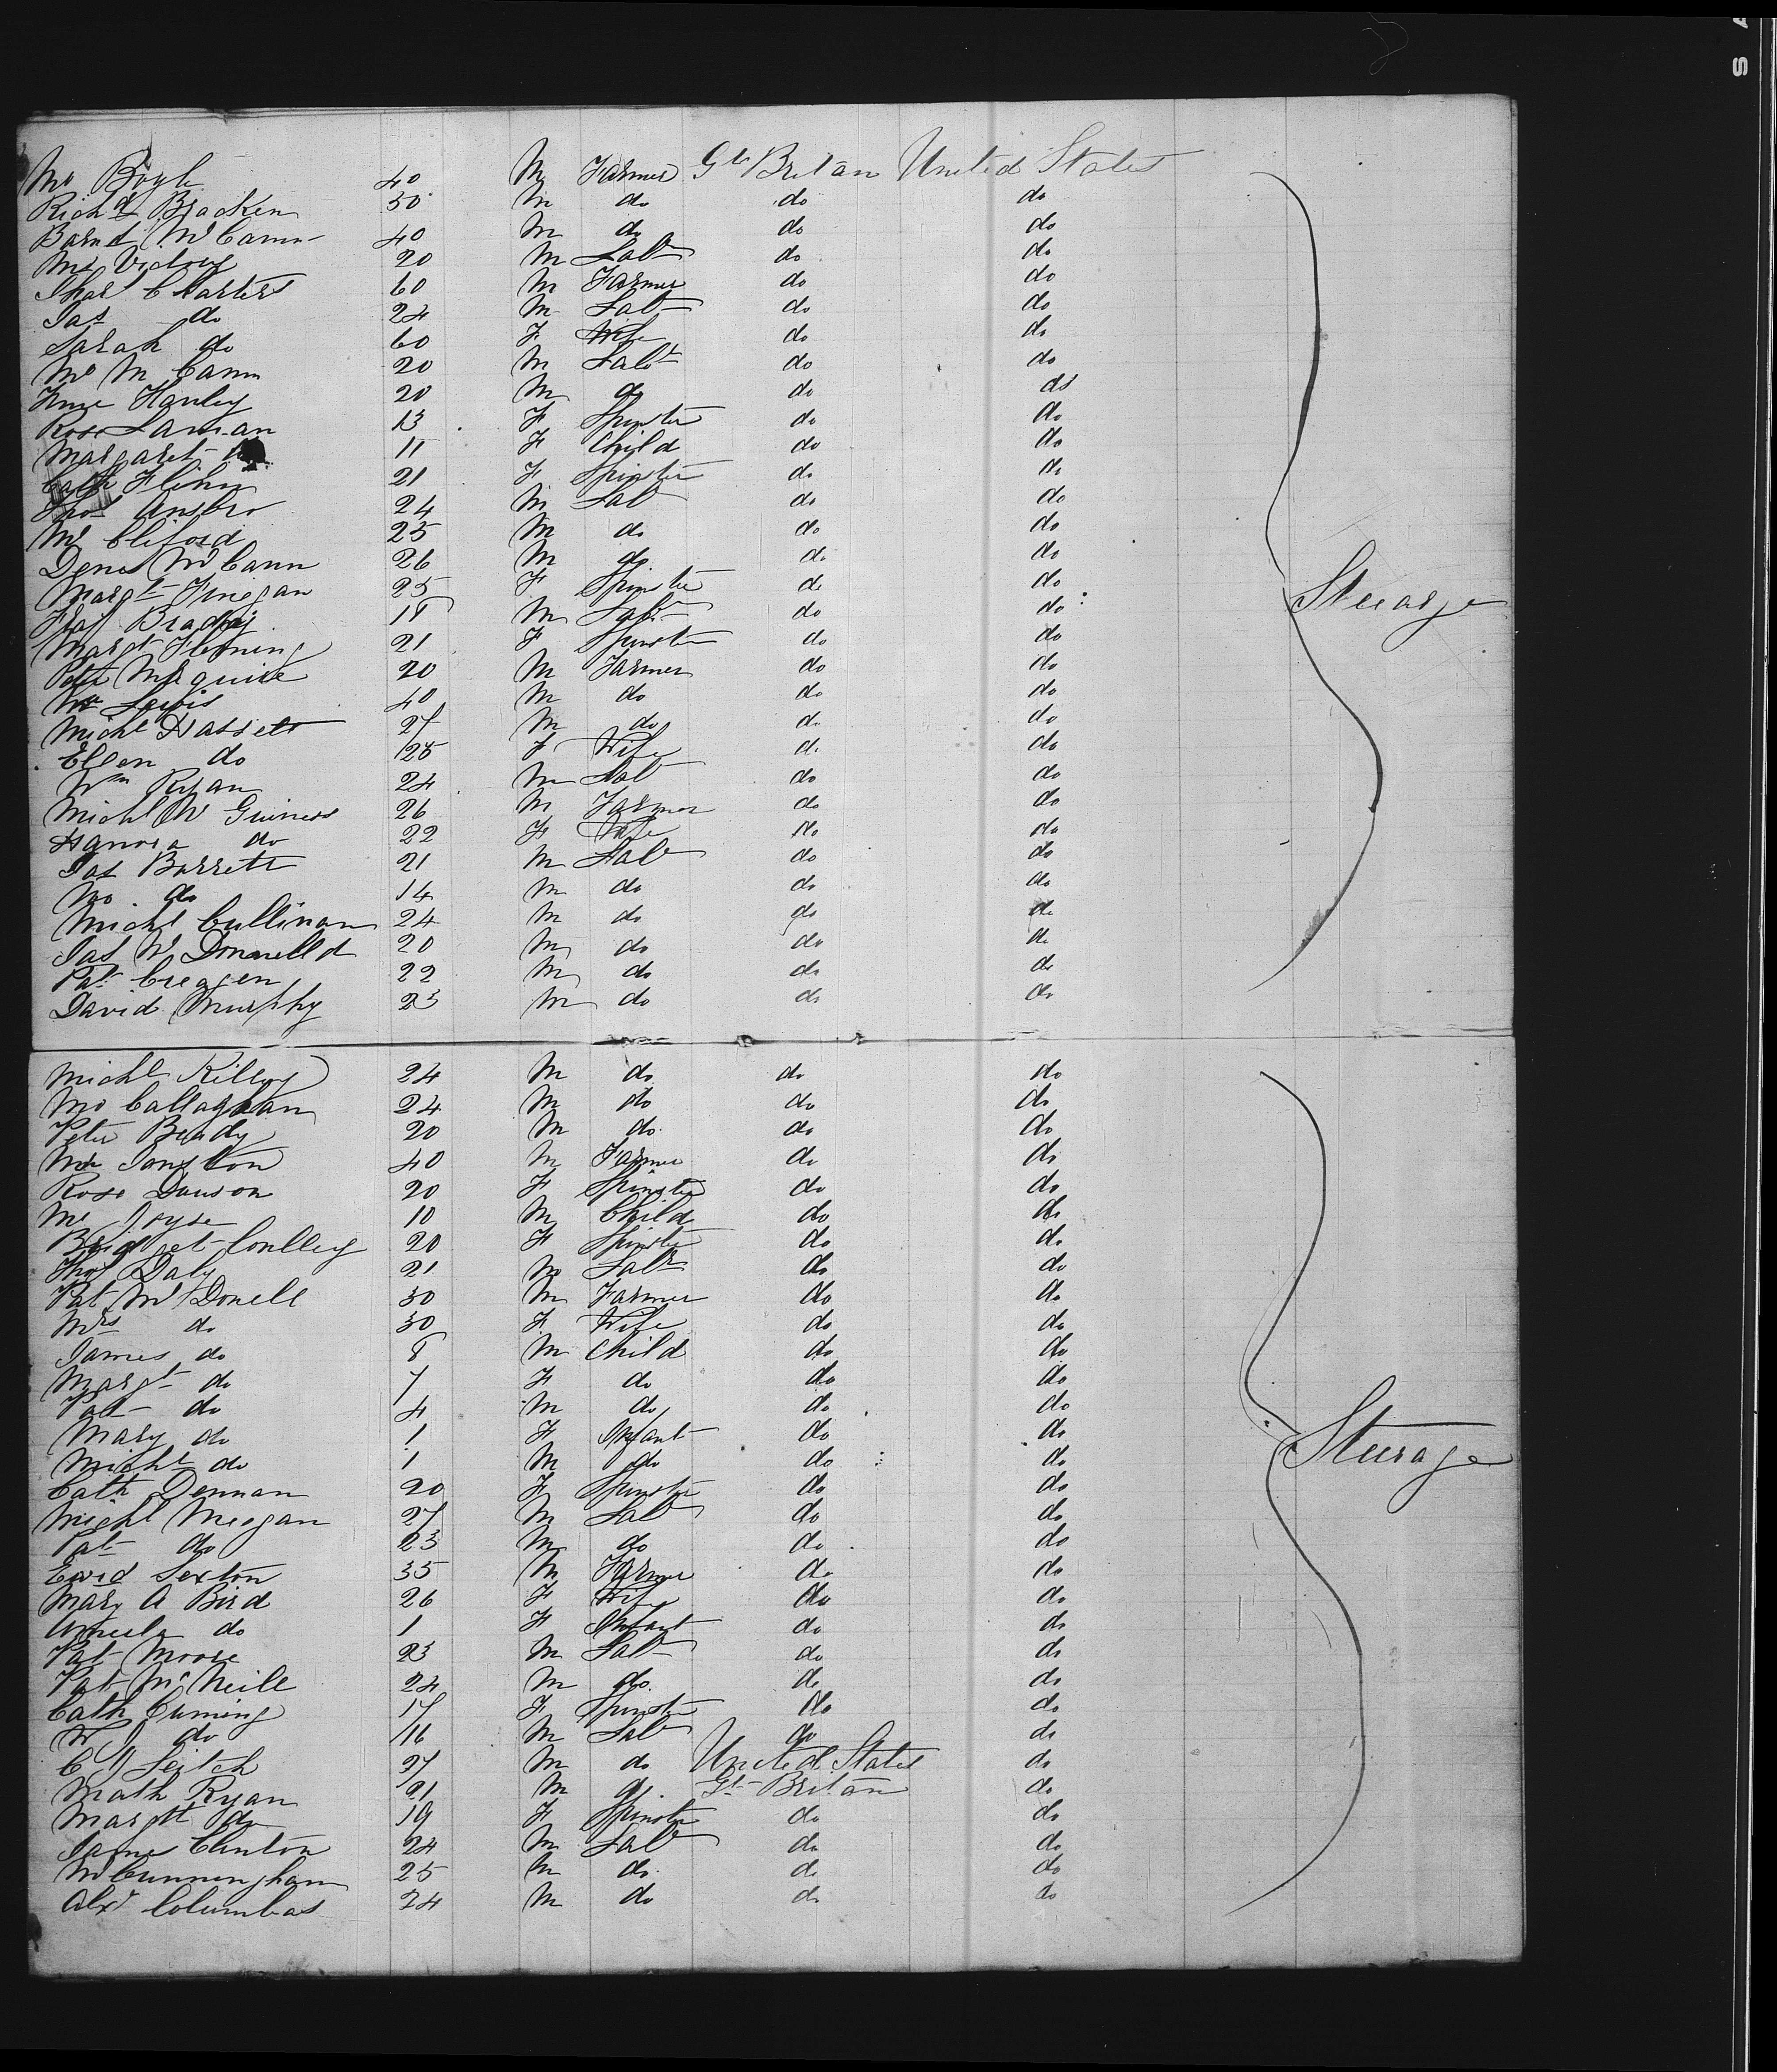 Mr Boyle 40 M Farmer Gt Britan United States
Richd Bracken 30 M do do do
Barnd McCann 40 M do do do
Mr Victory 20 M Labr do do
Thos Charters 60 M Farmer do do
Jas do 24 M Labr do do
Sarah do 60 F Wife do do
Mr McCann 20 M Labr do do
Hanley 20 M do do do
Rose Laman 13 F Spinster do do
Margaret 11 F Child do do
Cath Flinn 21 F Spinster do do
Thos Ansbro 24 M Labr do do
Mr Cliford 25 M do do do
Denis McCann 26 M do do do
Margt Finegan 25 F Spinster do do Steerage
Thos Brady 18 M Labr do do
Margt Fleming 21 F Spinster do do
Peter McGuire 20 M Farmer do do
Lewis 40 M do do do
Michl Hassett 27 M do do do
Ellen do 28 F Wife do do
Wm Ryan 24 M Labr do do
Michl McGuiness 26 M Farmer do do
Hanora do 22 F Wife do do
Jas Barrett 21 M Labr do do
Mr do 14 M do do do
Michl Cullinan 24 M do do do
Jas McDonnelld 20 M do do do
Pat Creagen 22 M do do do
David Murphy 23 M do do do
Michl Killoy 24 M do do do
Mr Callaghan 24 M do do do
Peter Brady 20 M do do do
Mr Johnston 40 M Farmer do do
Rose Dawson 20 F Spinster do do
Mr Joyse 10 M Child do do
Bridget Conlley 20 F Spinster do do
Thos Daly 21 M Labr do do
Pat McDonell 30 M Farmer do do
Mrs do 30 F Wife do do
James do 8 M Child do do
Margt do 7 F do do do
Pat do 4 M do do do
Mary do 1 F Infant do do
Michl do 1 M do do do Steerage
Cath Dennan 20 F Spinster do do
Michl Meegan 27 M Labr do do
Pat do 23 M do do do
Ewd Sexton 35 M Farmer do do
Mary A Bird 26 F Wife do do
Amelia do 1 F Infant do do
Pat Moore 23 M Labr do do
Pat McNeill 24 M do do do
Cath Cuming 17 F Spinster do do
W J do 16 M Labr do do
C J Leitch 27 M do United States do
Math Ryan 21 M do Gt Britan do
Margtt do 19 F Spinster do do
James Clinton 24 M Labr do do
Mr Cunningham 25 M do do do
Alxr Columbas 24 M do do do